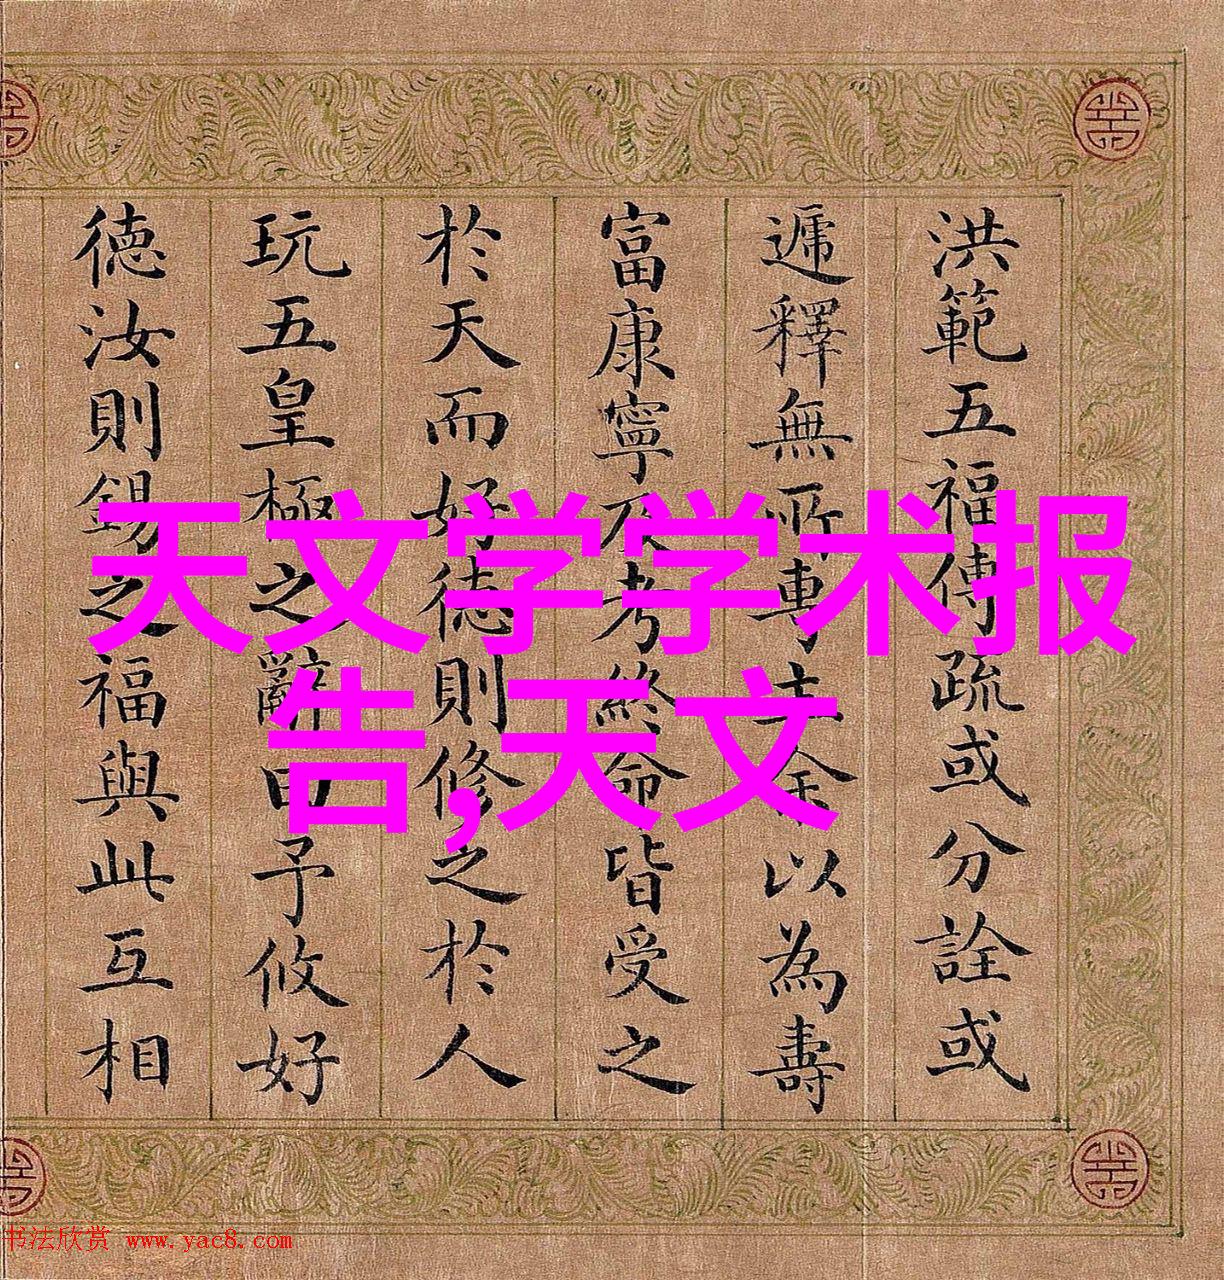 洪範五福傳疏或分詮或
遞釋無所專主余以為壽
富康寧及考終命皆受之
於天而好德則修之於人
玩五皇極之辭曰予攸好
德汝則錫之福與此互相
天文学学术报
告,天文
书法欣赏 www.yac8.com